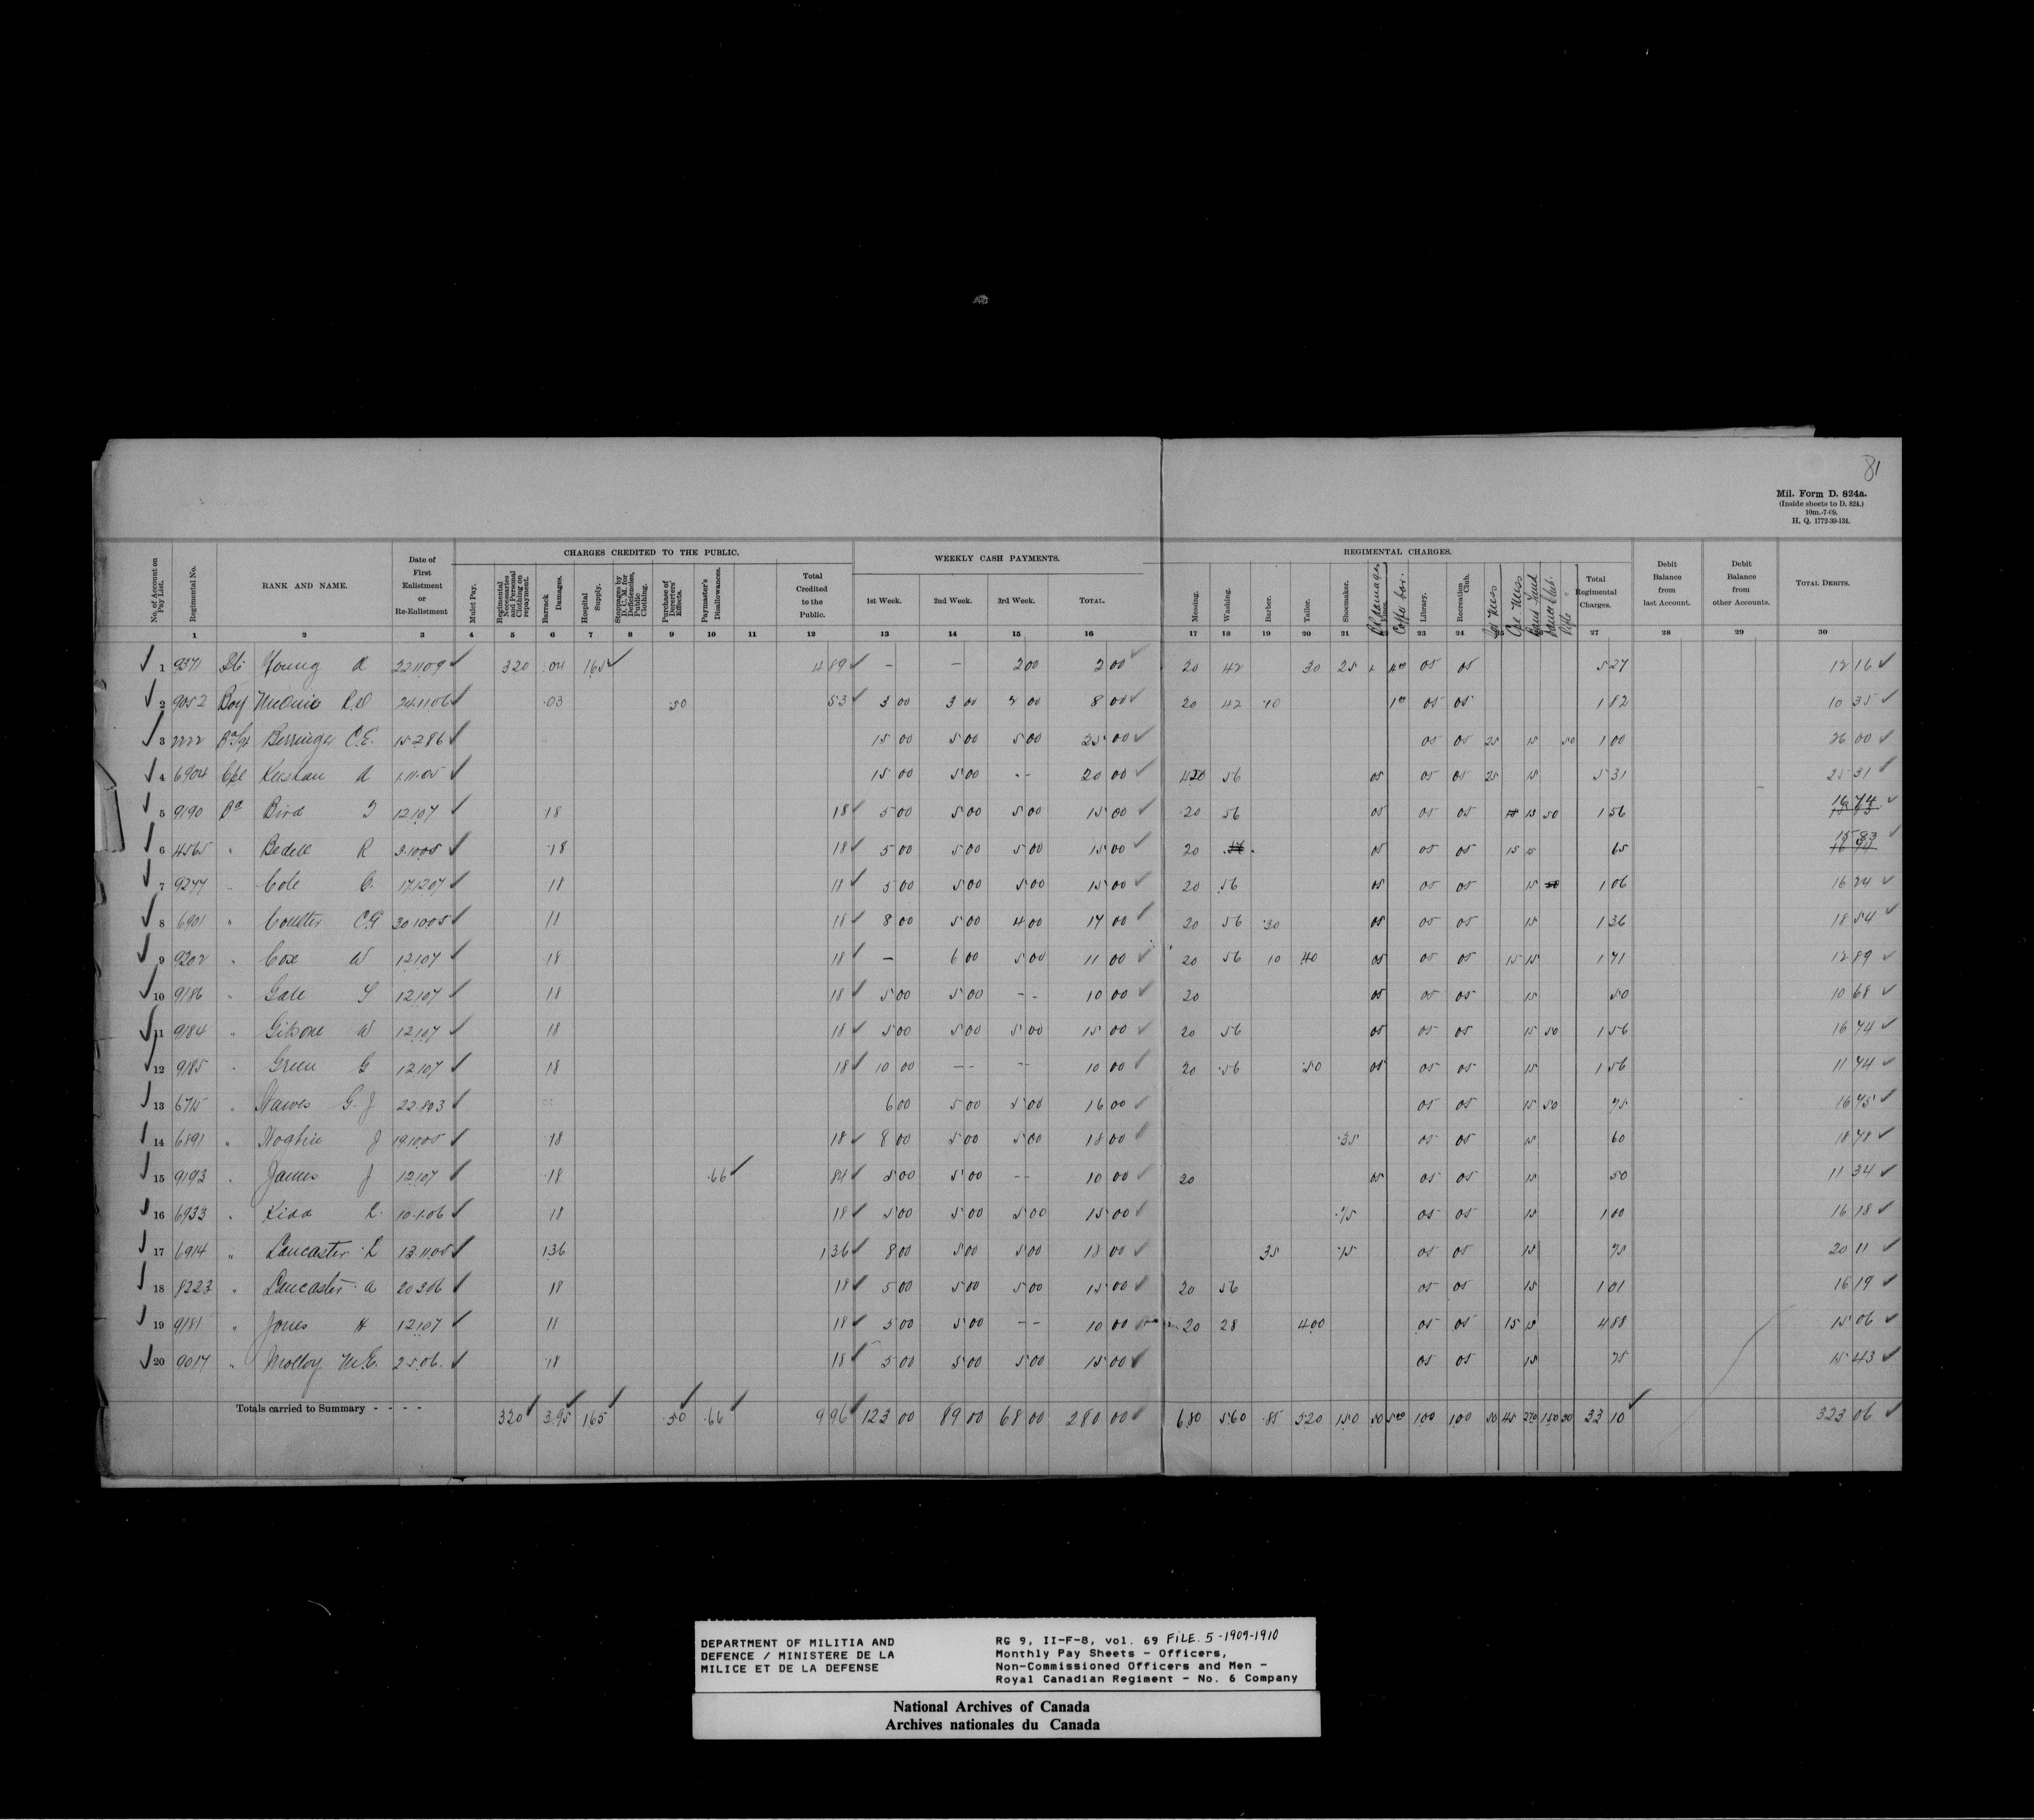 81
Mil. Form D. 824a.
(Inside sheets to D. 824.)
10m.-7-09.
H. Q. 1772-39-134.
CHARGES CREDITED TO THE PUBLIC. WEEKLY CASH PAYMENTS. REGIMENTAL CHARGES.
No. of Account on Pay List. Regimental No. RANK AND NAME. Date of First Enlistment or Re-Enlistment Mulct Pay. Regimental Necessaries and Personal Clothing on repayment. Barrack Damages. Hospital Supply. Stoppages by D. C. M. for Deficiencies, Public Clothing. Purchase of Deserters' Effects. Paymaster's Disallowances. Total Credited to the Public. 1st Week. 2nd Week. 3rd Week. TOTAL. Messing. Washing. Barber. Tailor. Shoemaker. Library. Recreation Club. Sgt Mess Cpl. Mess Total Regimental Charges. Debit Balance from last Account. Debit Balance from other Accounts. TOTAL DEBITS.
1 2 3 4 5 6 7 8 9 10 11 12 13 14 15 16 17 18 19 20 21 23 24 27 28 29 30
1 9371 Young A 22.11.09 320 .04 165 4 89 – – 2 00 2 00 20 42 30 25 05 05 5 27 12 16
2 9052 Boy R.D 24.11.06 .03 .50 53 3 00 3 00 2 00 8 00 20 42 10 1 00 05 05 1 82 10 35
3 2222 Berringer C.E. 15.2.86 15 00 5 00 5 00 25 00 05 05 25 15 50 1 00 26 00
4 6904 Cpl A 1.11.05 15 00 5 00 -- 20 00 420 56 05 05 05 25 15 5 31 25 31
5 9190 Bird 12.1.07 18 18 5 00 5 00 5 00 15 00 20 56 05 05 05 15 50 1 56 16 74
6 4565 " Bedell R 3.10.05 18 18 5 00 5 00 5 00 15 00 20 05 05 05 15 15 65 15 83
7 9277 " Cole C. 17.12.07 18 18 5 00 5 00 5 00 15 00 20 56 05 05 05 15 1 06 16 24
8 6901 " Coulter C.G 30.10.05 18 18 8 00 5 00 4 00 17 00 20 56 30 05 05 05 15 1 36 18 54
9 9202 " Cox W 12.1.07 18 18 – 6 00 5 00 11 00 20 56 10 40 05 05 05 15 15 1 71 12 89
10 9186 " Gale S 12.1.07 18 18 5 00 5 00 -- 10 00 20 05 05 05 15 50 10 68
11 9184 " W 12.1.07 18 18 5 00 5 00 5 00 15 00 20 56 05 05 05 15 50 1 56 16 74
12 9185 " Green G 12.1.07 18 18 10 00 -- -- 10 00 20 56 50 05 05 05 15 1 56 11 74
13 6715 " Hawes G. J 22.8.03 6 00 5 00 5 00 16 00 05 05 15 50 75 16 75
14 6891 " J 19.10.05 18 18 8 00 5 00 5 00 18 00 35 05 05 15 60 18 78
15 9193 " James J 12.1.07 18 .66 84 5 00 5 00 -- 10 00 20 05 05 05 15 50 11 34
16 6933 " Kidd 10.1.06 18 18 5 00 5 00 5 00 15 00 75 05 05 15 1 00 16 18
17 6914 " Lancaster 13.11.05 136 1 36 8 00 5 00 5 00 18 00 35 15 05 05 15 75 20 11
18 8223 " Lancaster A 20.3.06 18 18 5 00 5 00 5 00 15 00 20 56 05 05 15 1 01 16 19
19 9181 " Jones H 12.1.07 18 18 5 00 5 00 -- 10 00 20 28 400 05 05 15 15 4 88 15 06
20 9017 " Molloy M.E. 2.5.06. 18 18 5 00 5 00 5 00 15 00 05 05 15 25 15 43
Totals carried to Summary - - - - 320 3.95 165 .50 .66 9 96 123 00 89 00 68 00 280 00 6 80 5.60 .85 5.20 150 50 5 00 1 00 1 00 50 45 270 150 50 33 10 323 06
DEPARTMENT OF MILITIA AND
DEFENCE / MINISTERE DE LA
MILICE ET DE LA DEFENSE
RG 9, II-F-8, vol. 69 FILE. 5 - 1909-1910
Monthly Pay Sheets - Officers,
Non-Commissioned Officers and Men -
Royal Canadian Regiment - No. 6 Company
National Archives of Canada
Archives nationales du Canada